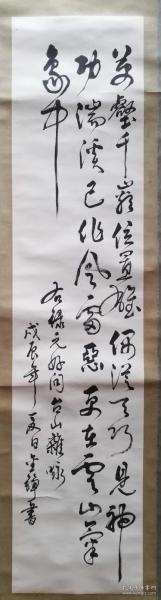 萬壑千巖位置雄偶從天巧見神
功湍溪已作風雷惡更在雲山氣
象中
右録元好问台山雜咏
戊辰年夏日書